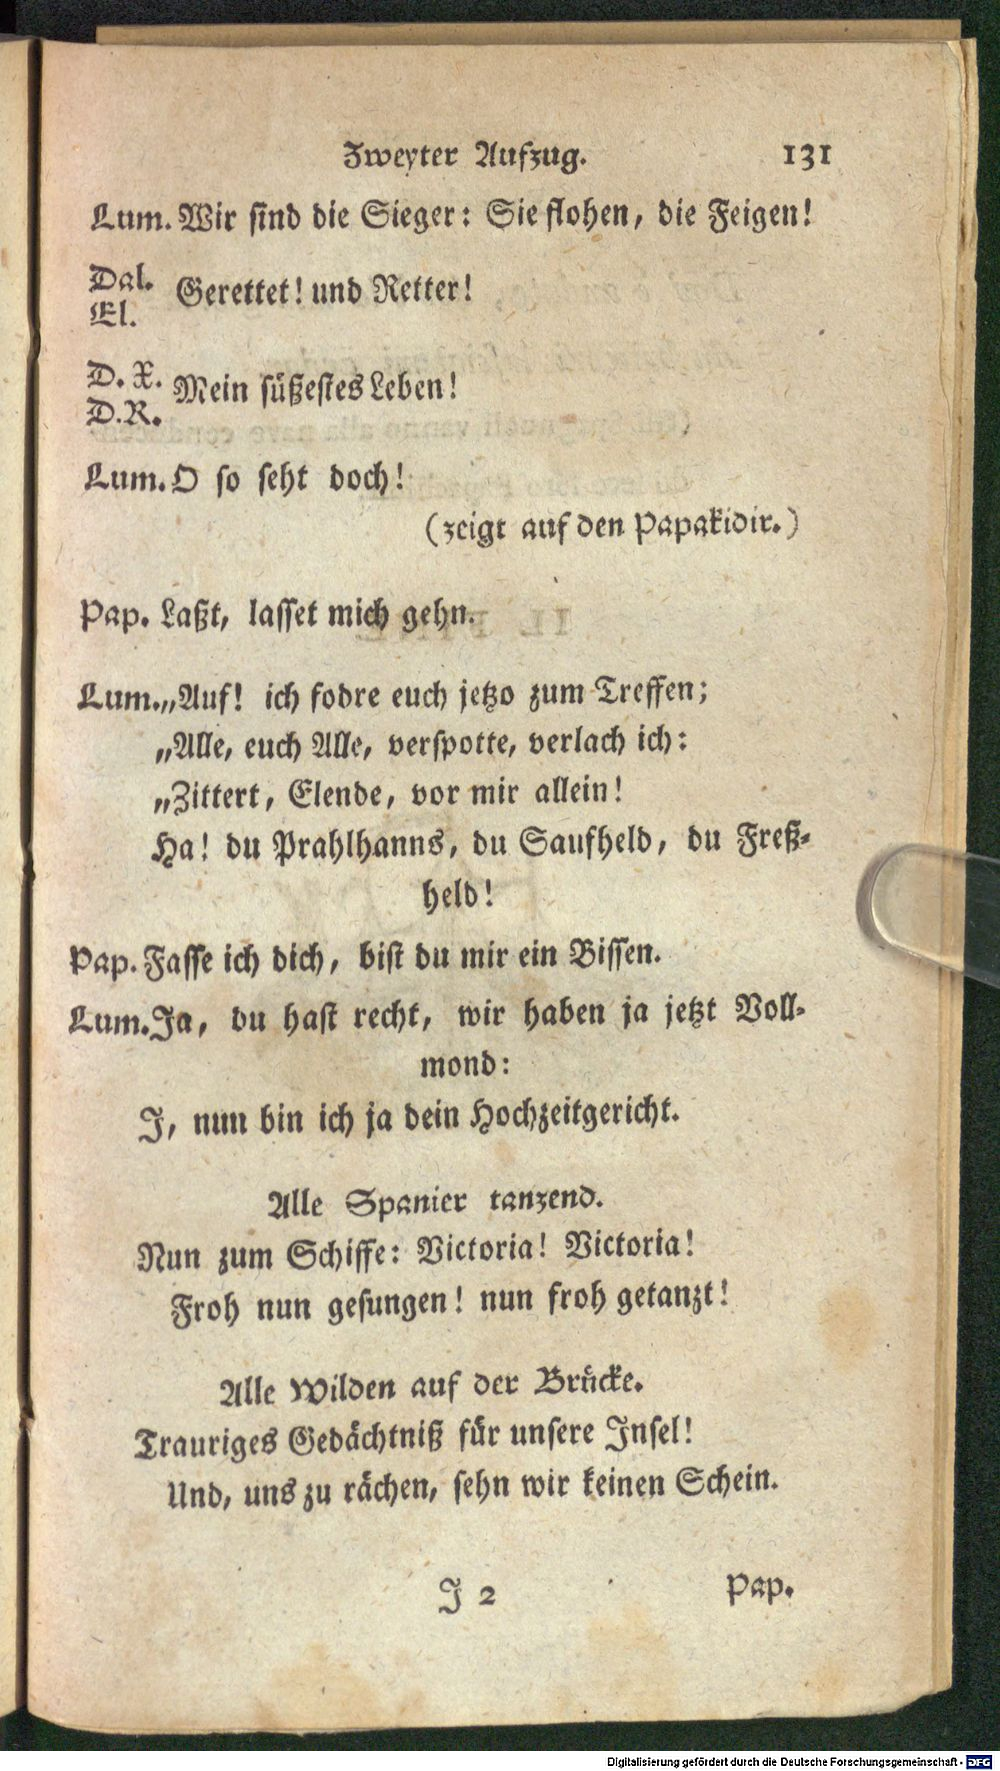 Zweyter Aufzug. 131
Lum. Wir sind die Sieger: Sie flohen, die Feigen!
Dal.
El. Gerettet! und Retter!
D. X.
D. R. Mein süßestes Leben!
Lum. O so seht doch!
(zeigt auf den Papakidir.)
Pap. Laßt, lasset mich gehn.
Lum. „Auf! ich fodre euch jetzo zum Treffen;
„Alle, euch Alle, verspotte, verlach ich:
„Zittert, Elende, vor mir allein!
Ha! du Prahlhanns, du Saufheld, du Freß-
held!
Pap. Fasse ich dich, bist du mir ein Bissen.
Lum. Ja, du hast recht, wir haben ja jetzt Voll-
mond:
J, nun bin ich ja dein Hochzeitgericht.
Alle Spanier tanzend.
Nun zum Schiffe: Victoria! Victoria!
Froh nun gesungen! nun froh getanzt!
Alle Wilden auf der Brücke.
Trauriges Gedächtniß für unsere Insel!
Und, uns zu rächen, sehn wir keinen Schein.
J 2 Pap.
Digitalisierung gefördert durch die Deutsche Forschungsgemeinschaft - DFG